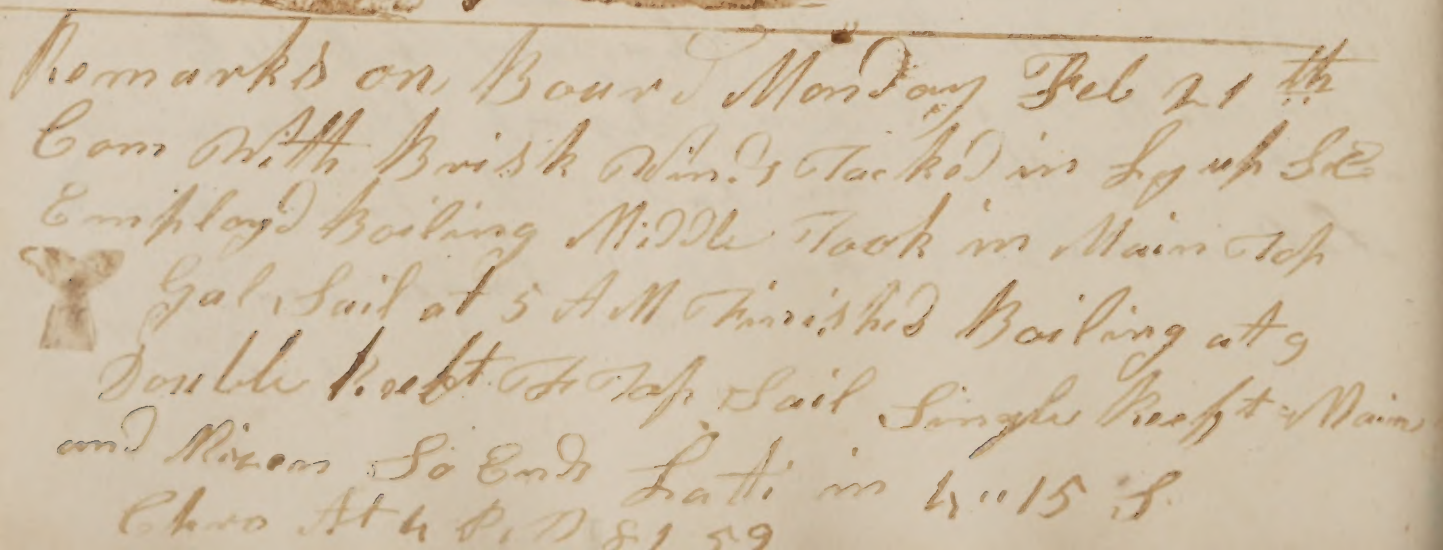 Remarks on Board Monday Feb 21th
Com With Brisk Winds Tacked in Sy up SE
Employd Boiling Middle Took in Main Top
Gal Sail at 5 A M Finished Boiling at 9
Double Reeft F Top Sail Single Reeft Main
and Mizen So Ends Lati in 4"15 S
Chro At 4 P. M 81 59